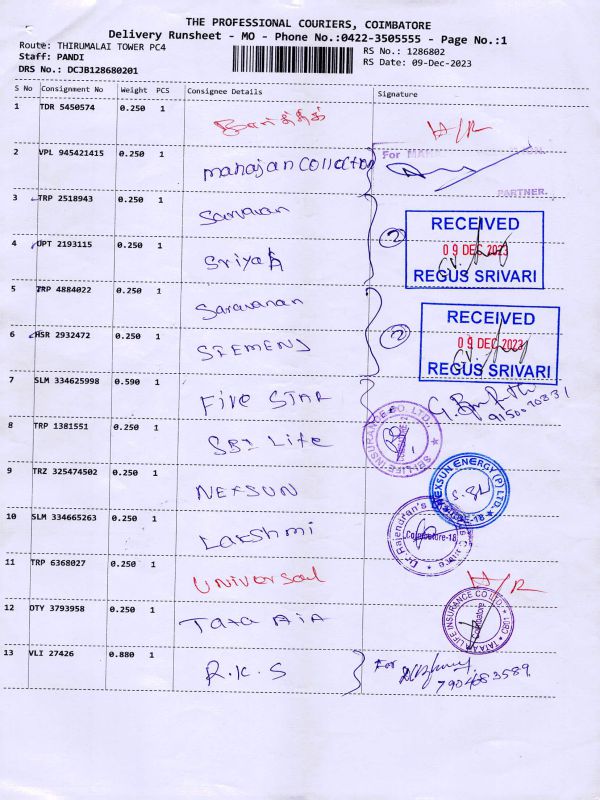 THE PROFESSIONAL COURIERS, COIMBATORE
Delivery Runsheet - MO - Phone No.:0422-3505555 - Page No.:1
Route: THIRUMALAI TOWER PC4
RS No.: 1286802
Staff: PANDI
RS Date: 09-Dec-2023
DRS No.: DCJB128680201
S No Consignment No Weight PCS Consignee Details Signature
1 TDR 5450574 0.250 1
H/R
2 VPL 945421415 0.250 1 mahajan Collection
For
PARTNER.
3 TRP 2518943 0.250 1 Saravanan
RECEIVED
09 DEC 2023
REGUS SRIVARI
4 UPT 2193115 0.250 1 Sriya
2
5 TRP 4884022 0.250 1 Saravanan
RECEIVED
09 DEC 2023
REGUS SRIVARI
6 HSR 2932472 0.250 1 SIEMENS
2
7 SLM 334625998 0.590 1 Five STAR
8 TRP 1381551 0.250 1 SBI Life
SBI LIFE INSURANCE CO. LTD.
9 TRZ 325474502 0.250 1 NEXSUN
NEXSUN ENERGY (P) LTD.
10 SLM 334665263 0.250 1 Lakshmi
Dr. Rajendran's
Coimbatore-18
11 TRP 6368027 0.250 1 Universal
H/R
12 OTY 3793958 0.250 1 Tata AiA
TATA AIA LIFE INSURANCE CO LTD.
Coimbatore
13 VLI 27426 0.880 1 R.K.S
For
7904683589